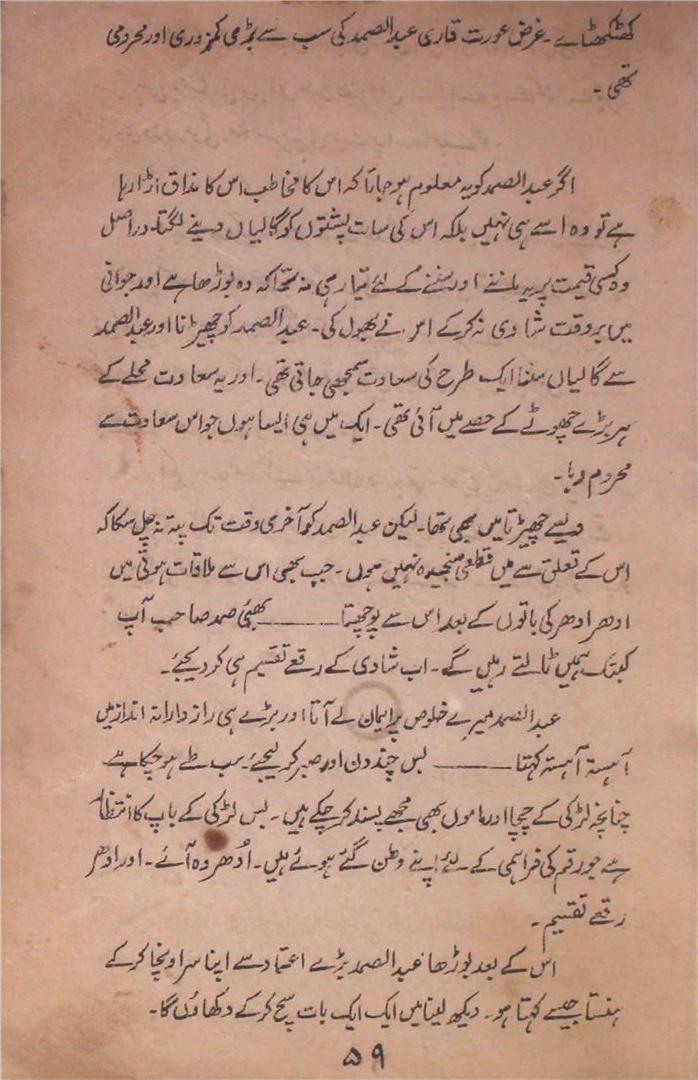 کھٹکھٹائے۔ غرض عورت قاری عبدالصمد کی سب سے بڑی کمزوری اور محرومی
تھی۔
اگر عبدالصمد کو یہ معلوم ہو جاتا کہ اس کا مخاطب اس کا مذاق اڑا رہا
ہے تو وہ اسے ہی نہیں بلکہ اس کی سات پشتوں کو گالیاں دینے لگتا۔ دراصل
وہ کسی قیمت پر یہ ماننے اور سننے کے لئے تیار ہی نہ تھا کہ وہ بوڑھا ہے اور جوانی
میں بروقت شادی نہ کر کے اس نے بھول کی۔ عبدالصمد کو چھیڑنا اور عبدالصمد
سے گالیاں سننا ایک طرح کی سعادت سمجھی جاتی تھی۔ اور یہ سعادت محلے کے
ہر بڑے چھوٹے کے حصے میں آئی تھی۔ ایک میں ہی ایسا ہوں جو اس سعادت سے
محروم رہا۔
ویسے چھیڑتا میں بھی تھا۔ لیکن عبدالصمد کو آخری وقت تک پتہ نہ چل سکا کہ
اس کے تعلق سے میں قطعی سنجیدہ نہیں ہوں۔ جب بھی اس سے ملاقات ہوتی میں
ادھر ادھر کی باتوں کے بعد اس سے پوچھتا ——— بھئی صمد صاحب آپ
کب تک ہمیں ٹالتے رہیں گے۔ اب شادی کے رقعے تقسیم ہی کر دیجئے۔
عبدالصمد میرے خلوص پر ایمان لے آتا اور بڑے ہی رازدارانہ انداز میں
آہستہ آہستہ کہتا ——— بس چند دن اور صبر کر لیجئے۔ سب طے ہو چکا ہے
چنانچہ لڑکی کے چچا اور ماموں بھی مجھے پسند کر چکے ہیں۔ بس لڑکی کے باپ کا انتظار
ہے جو رقم کی فراہمی کے لئے اپنے وطن گئے ہوئے ہیں۔ اُدھر وہ آئے۔ اور ادھر
رقعے تقسیم۔
اس کے بعد بوڑھا عبدالصمد بڑے اعتماد سے اپنا سر اونچا کر کے
ہنستا جیسے کہتا ہو۔ دیکھ لینا میں ایک ایک بات سچ کر کے دکھاؤں گا۔
۵۹